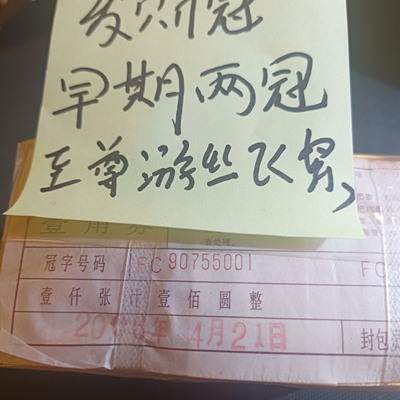 发财冠
早期两冠
至尊游丝飞舞
壹角券
冠字号码 FC 90755001 FC
壹仟张 计壹佰圆整
4月21日 封包